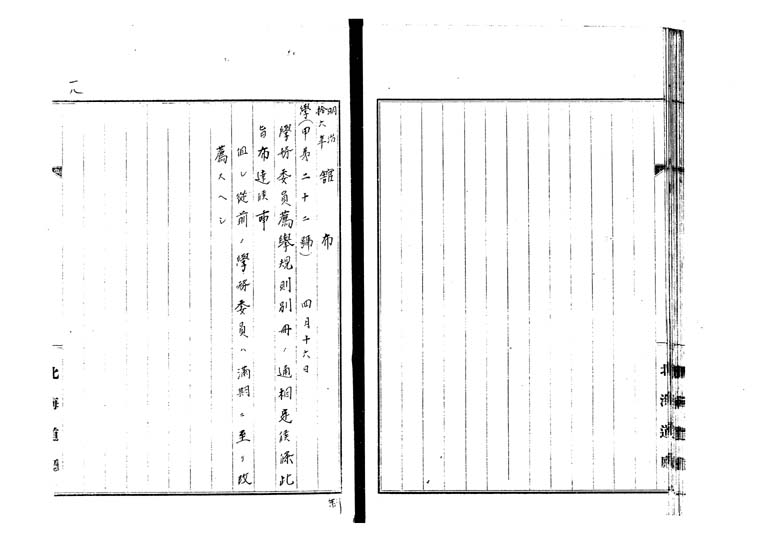 明治拾六年 舘布
學(甲第二十二號) 四月十六日
學務委員薦擧規則別冊ノ通相定候條此
旨布達候事
但シ從前ノ學務委員ハ滿期ニ至リ改
薦スヘシ
一八
北海道廳
北海道廳